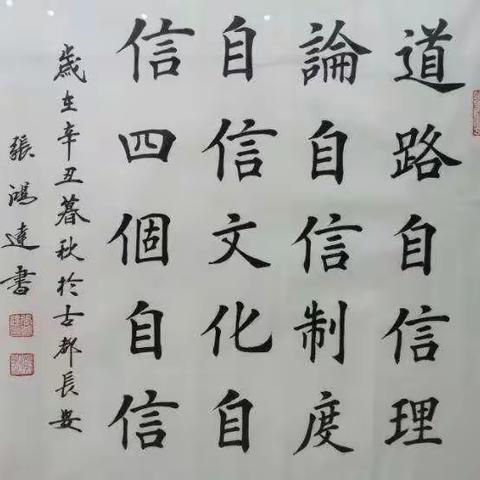 道路自信理
論自信制度
自信文化自
信四個自信
歲在辛丑暮秋於古都長安
張鴻達書